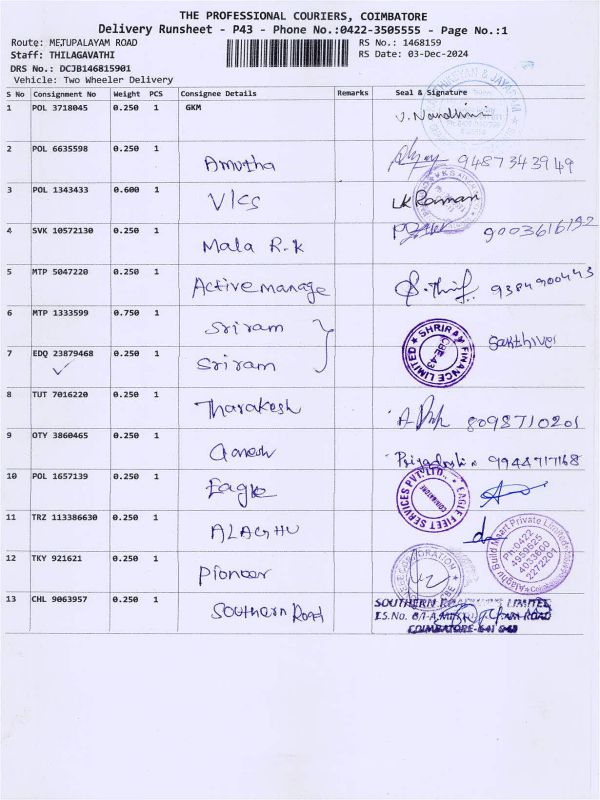 THE PROFESSIONAL COURIERS, COIMBATORE
Delivery Runsheet - P43 - Phone No.:0422-3505555 - Page No.:1
Route: METUPALAYAM ROAD RS No.: 1468159
Staff: THILAGAVATHI RS Date: 03-Dec-2024
DRS No.: DCJB146815901
Vehicle: Two Wheeler Delivery
S No Consignment No Weight PCS Consignee Details Remarks Seal & Signature
1 POL 3718045 0.250 1 GKM V. Nandhini
2 POL 6635598 0.250 1 Amutha 9487343949
3 POL 1343433 0.600 1 VKS
4 SVK 10572130 0.250 1 Mala R.K 9003616192
5 MTP 5047220 0.250 1 Active manage 9384900443
6 MTP 1333599 0.750 1 Sriram Sakthivel
SHRIRAM FINANCE LIMITED
CBE-43
7 EDQ 23879468 0.250 1 Sriram
8 TUT 7016220 0.250 1 Tharakesh 8098710201
9 OTY 3860465 0.250 1 Ganesh 9944717168
10 POL 1657139 0.250 1 Eagle
EAGLE FLEET SERVICES PVT. LTD.
COIMBATORE
11 TRZ 113386630 0.250 1 ALAGHU
Alaghu Build Maart Private Limited
Ph:0422
4959625
4033600
2272201
12 TKY 921621 0.250 1 Pioneer
CORPORATION
CBE
13 CHL 9063957 0.250 1 Southern Road
SOUTHERN LIMITED
ROAD
COIMBATORE-641 043